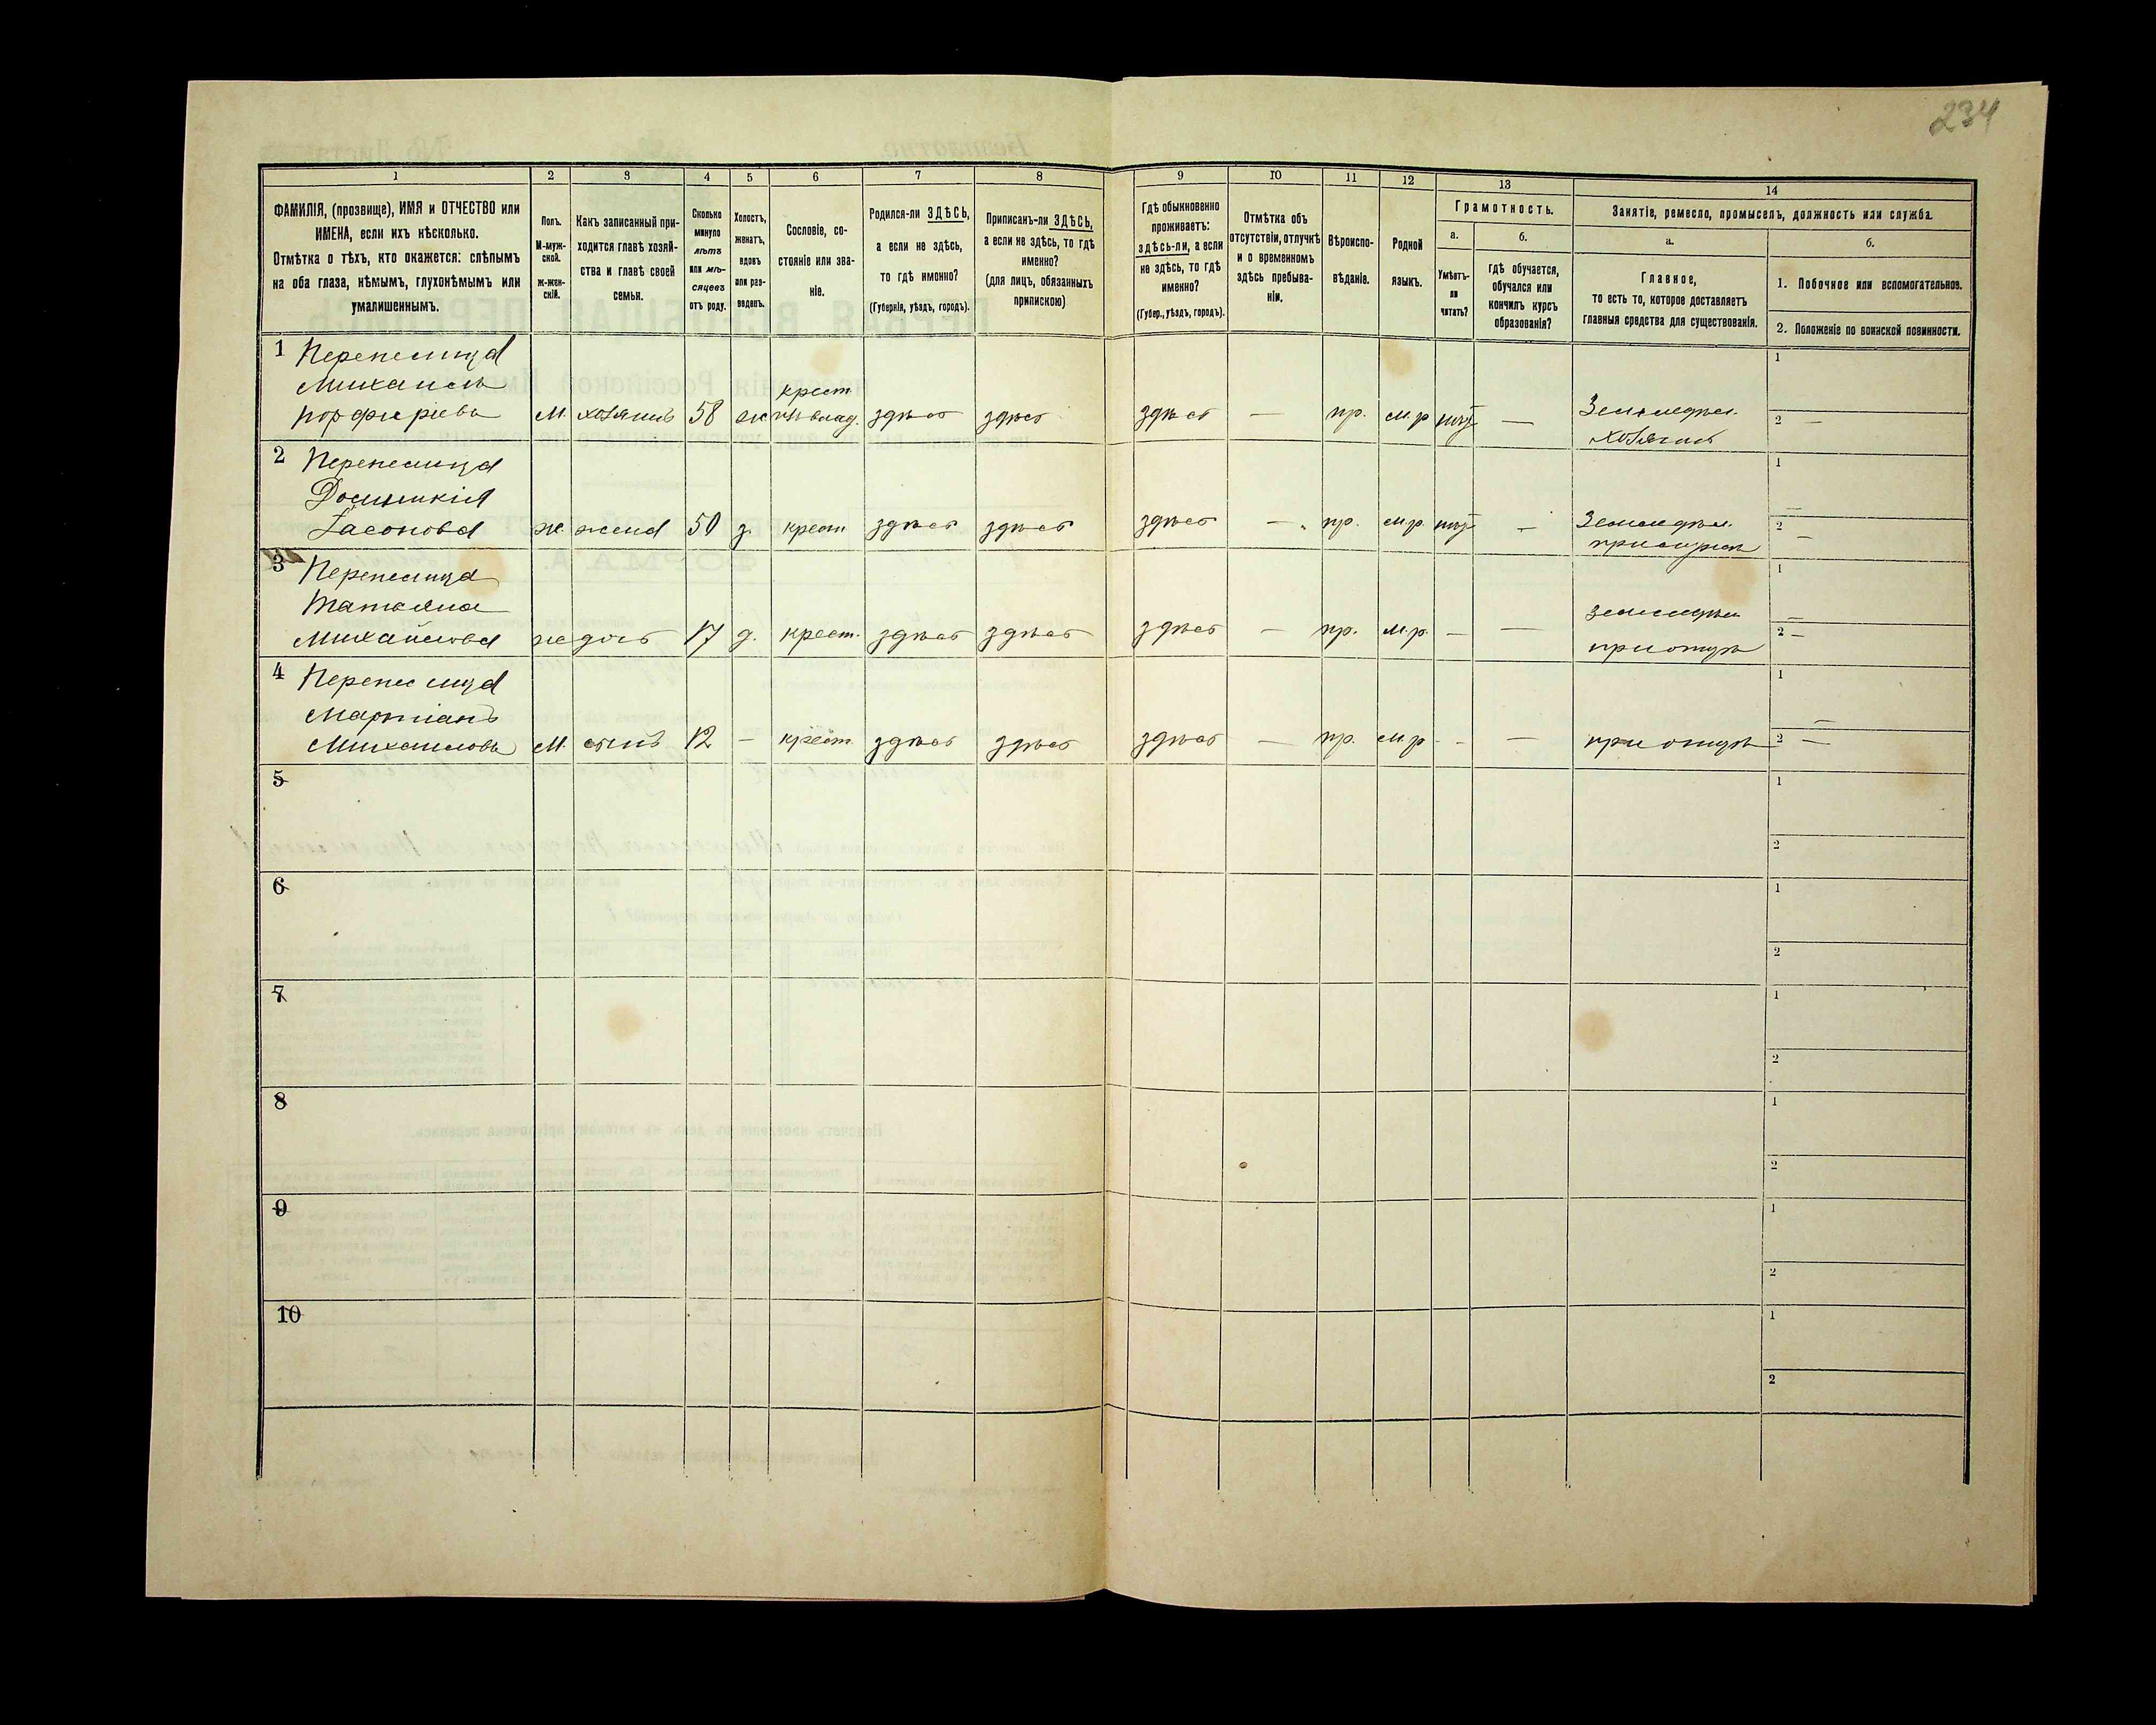 234
1
2
3
4
5
6
7
8
9
10
11
12
13
14
ФАМИЛІЯ, (прозвище), ИМЯ и ОТЧЕСТВО или
ИМЕНА, если ихъ нѣсколько.
Отмѣтка о тѣхъ, кто окажется: слѣпымъ
на оба глаза, нѣмымъ, глухонѣмымъ или
умалишеннымъ.
Полъ.
М-муж-
ской.
ж-жен-
скій.
Какъ записанный при-
ходится главѣ хозяй-
ства и главѣ своей
семьи.
Сколько
минуло
лѣтъ
или мѣ-
сяцевъ
отъ роду.
Холостъ,
женатъ,
вдовъ
или раз-
веденъ.
Сословіе, со-
стояніе или зва-
ніе.
Родился-ли ЗДѢСЬ,
а если не здѣсь,
то гдѣ именно?
(Губернія, уѣздъ, городъ).
Приписанъ-ли ЗДѢСЬ,
а если не здѣсь, то гдѣ
именно?
(для лицъ, обязанныхъ
припискою)
Гдѣ обыкновенно
проживаетъ:
здѣсь-ли, а если
не здѣсь, то гдѣ
именно?
(Губер., уѣздъ, городъ).
Отмѣтка объ
отсутствіи, отлучкѣ
и о временномъ
здѣсь пребыва-
ніи.
Вѣроиспо-
вѣданіе.
Родной
языкъ.
Грамотность.
а.
Умѣетъ-
ли
читать?
б.
гдѣ обучается,
обучался или
кончилъ курсъ
образованія?
Занятіе, ремесло, промыселъ, должность или служба.
а.
Главное,
то есть то, которое доставляетъ
главныя средства для существованія.
б.
1. Побочное или вспомогательное.
2. Положеніе по воинской повинности.
1 Перепелица
Михаилъ
порфирiевъ М. хозяинъ 58 ж крест. владѣ. здѣсь здѣсь здѣсь — пр. м.р. — Земледѣл.
хозяинъ
1
2 —
2 Перепелица
ж. жена 50 з. крест здѣсь здѣсь здѣсь — пр. м.р. — Земледѣл.
при мужѣ
1 —
2 —
3 Перепелица
Татьяна
Михайлова ж дочь 17 д. крест. здѣсь здѣсь здѣсь — пр. м.р. — — земледѣл
при отцѣ
1 —
2 —
4 Перепелица
Михаиловъ М. сынъ 12 — крест. здѣсь здѣсь здѣсь — пр. м.р — — при отцѣ
1 —
2 —
5
1
2
6
1
2
7
1
2
8
1
2
9
1
2
10
1
2